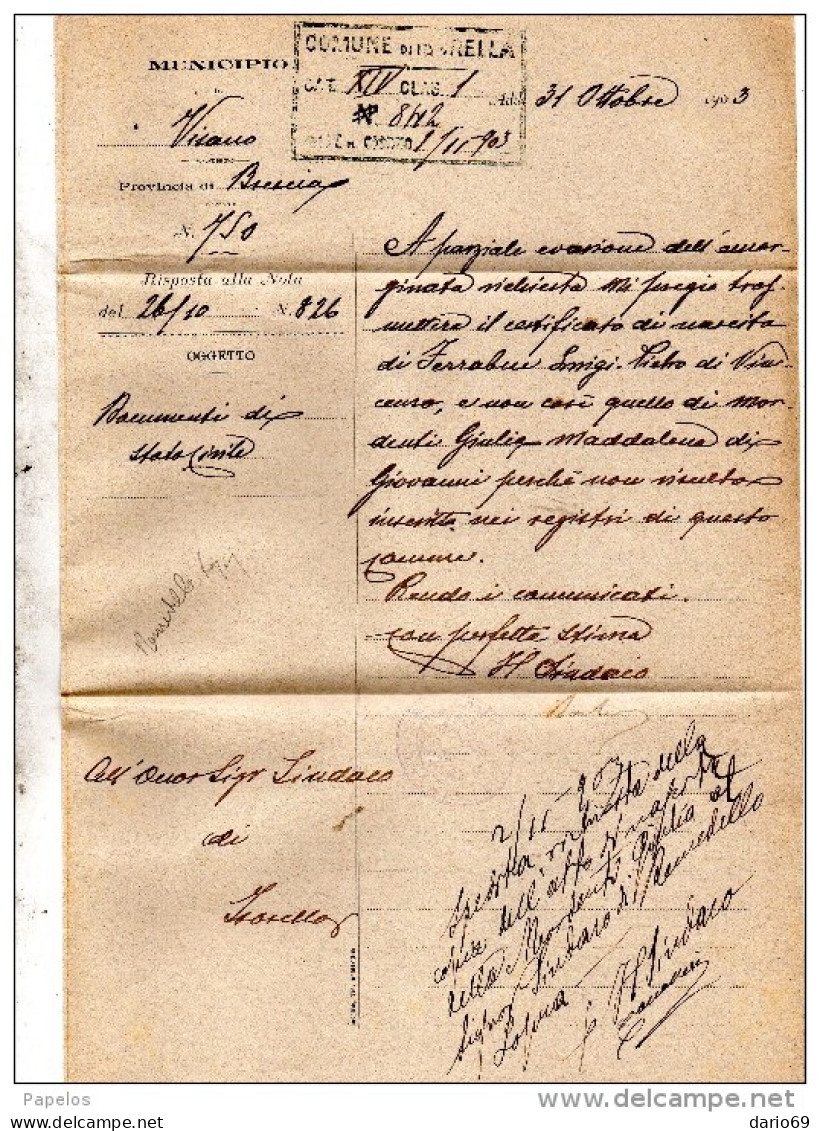 MUNICIPIO
di
Visano
Provincia di Brescia
N. 750
Risposta alla Nota
del 26/10 N. 826
OGGETTO
Documenti di
Stato Civile
COMUNE DI ISORELLA
CAT. XIV CLAS. 1
N. 842
1/11 903
Addì 31 Ottobre 1903
A parziale evasione dell'emar-
ginata richiesta mi pregio tras-
mettere il certificato di nascita
di Ferrabue Luigi Pietro di Vin-
cenzo, e non così quello di Mor-
denti Giulia Maddalena di
Giovanni perchè non risulta
inscritta nei registri di questo
comune.
Rendo i comunicati.
Con perfetta stima
Il Sindaco
Remedello
All'Onor Sigr Sindaco
di
Isorella
2/11-903
Spedita richiesta della
copia dell'atto di nascita
della Mordenti Giulia al
Signor Sindaco di Remedello
Sopra
Il Sindaco
Papelos
delcampe.net
dario69